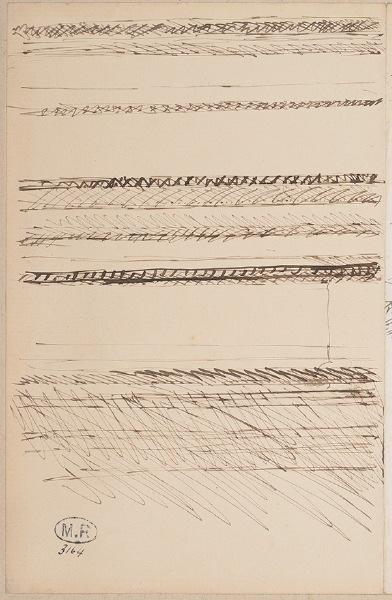 M.R
3164